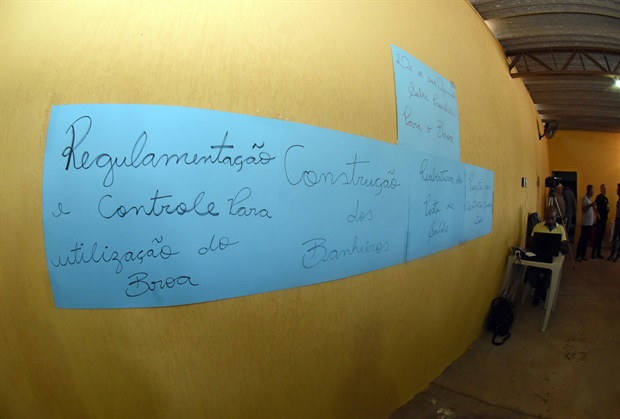 Regulamentação
e Controle Para
utilização do
Boroa
Construção
dos
Banheiros
Reabertura do
Posto de
Saúde
Dê a sua
Sobre
Para o Boroa